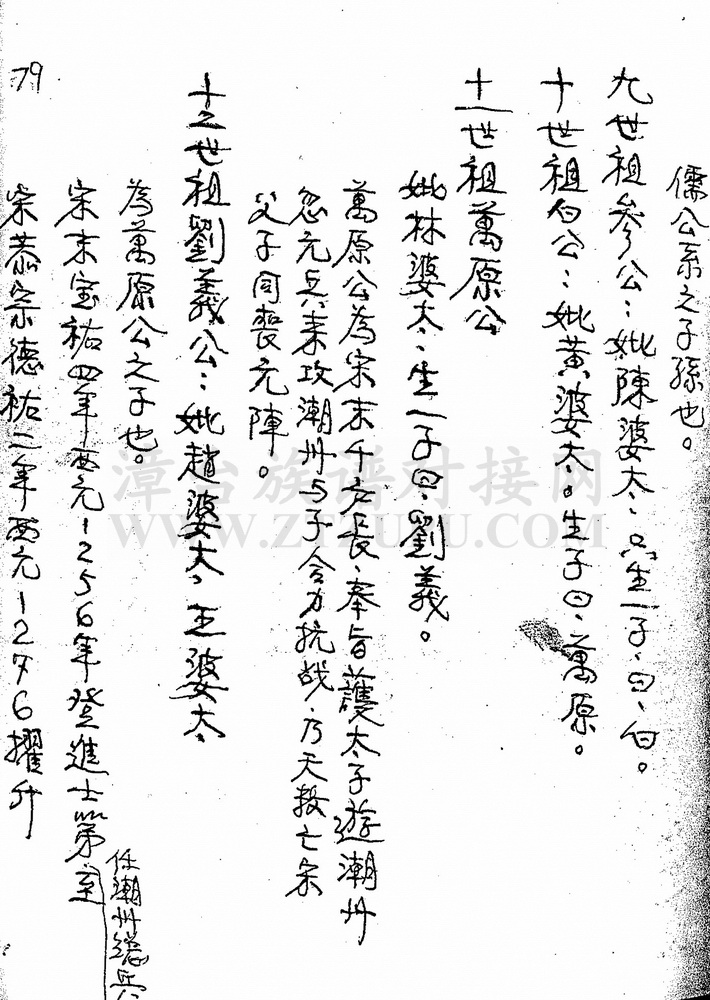 儒公系之子孫也。
九世祖參公：妣陳婆太、只生一子、曰、白。
十世祖白公：妣黃婆太。生子曰、萬原。
十一世祖萬原公
妣林婆太、生一子曰、劉義。
萬原公為宋末千户長、奉旨護太子遊潮州
忽元兵来攻潮州与子合力抗战、乃天殺亡宋
父子同喪元陣。
十二世祖劉義公：妣趙婆太、王婆太
為萬原公之子也。
宋末宝祐四年西元1256年登進士第、至
任潮州總兵
宋恭宗德祐二年西元1276擢升
79
漳台族谱对接网
WWW.ZTZUPU.COM